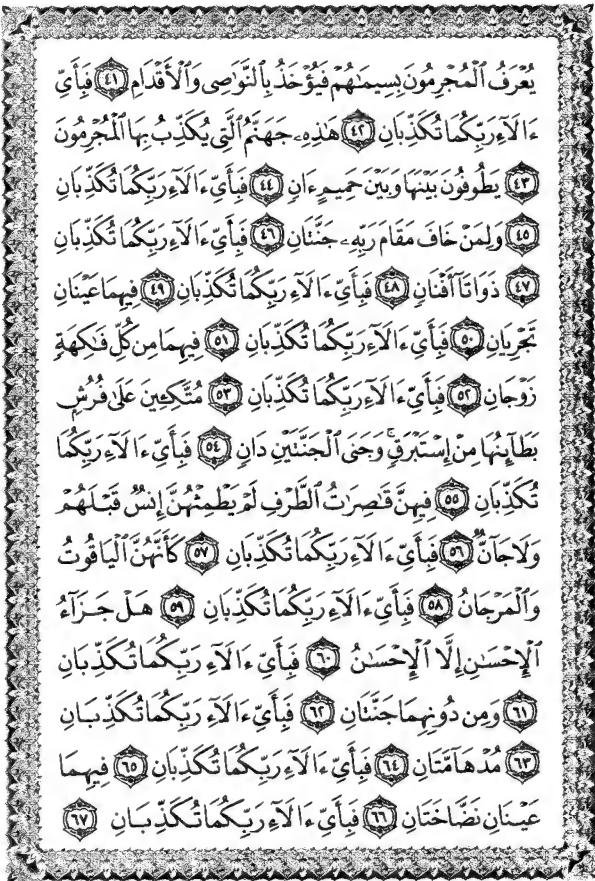 يُعۡرَفُ ٱلۡمُجۡرِمُونَ بِسِيمَٰهُمۡ فَيُؤۡخَذُ بِٱلنَّوَٰصِى وَٱلۡأَقۡدَامِ ٤١ فَبِأَىِّ
ءَالَآءِ رَبِّكُمَا تُكَذِّبَانِ ٤٢ هَٰذِهِۦ جَهَنَّمُ ٱلَّتِى يُكَذِّبُ بِهَا ٱلۡمُجۡرِمُونَ
٤٣ يَطُوفُونَ بَيۡنَهَا وَبَيۡنَ حَمِيمٍ ءَانٍ ٤٤ فَبِأَىِّ ءَالَآءِ رَبِّكُمَا تُكَذِّبَانِ
٤٥ وَلِمَنۡ خَافَ مَقَامَ رَبِّهِۦ جَنَّتَانِ ٤٦ فَبِأَىِّ ءَالَآءِ رَبِّكُمَا تُكَذِّبَانِ
٤٧ ذَوَاتَآ أَفۡنَانٍ ٤٨ فَبِأَىِّ ءَالَآءِ رَبِّكُمَا تُكَذِّبَانِ ٤٩ فِيهِمَا عَيۡنَانِ
تَجۡرِيَانِ ٥٠ فَبِأَىِّ ءَالَآءِ رَبِّكُمَا تُكَذِّبَانِ ٥١ فِيهِمَا مِن كُلِّ فَٰكِهَةٍ
زَوۡجَانِ ٥٢ فَبِأَىِّ ءَالَآءِ رَبِّكُمَا تُكَذِّبَانِ ٥٣ مُتَّكِـِٔينَ عَلَىٰ فُرُشِۭ
بَطَآئِنُهَا مِنۡ إِسۡتَبۡرَقٖۚ وَجَنَى ٱلۡجَنَّتَيۡنِ دَانٍ ٥٤ فَبِأَىِّ ءَالَآءِ رَبِّكُمَا
تُكَذِّبَانِ ٥٥ فِيهِنَّ قَٰصِرَٰتُ ٱلطَّرۡفِ لَمۡ يَطۡمِثۡهُنَّ إِنسٌ قَبۡلَهُمۡ
وَلَا جَآنٌّ ٥٦ فَبِأَىِّ ءَالَآءِ رَبِّكُمَا تُكَذِّبَانِ ٥٧ كَأَنَّهُنَّ ٱلۡيَاقُوتُ
وَٱلۡمَرۡجَانُ ٥٨ فَبِأَىِّ ءَالَآءِ رَبِّكُمَا تُكَذِّبَانِ ٥٩ هَلۡ جَزَآءُ
ٱلۡإِحۡسَٰنِ إِلَّا ٱلۡإِحۡسَٰنُ ٦٠ فَبِأَىِّ ءَالَآءِ رَبِّكُمَا تُكَذِّبَانِ
٦١ وَمِن دُونِهِمَا جَنَّتَانِ ٦٢ فَبِأَىِّ ءَالَآءِ رَبِّكُمَا تُكَذِّبَانِ
٦٣ مُدۡهَآمَّتَانِ ٦٤ فَبِأَىِّ ءَالَآءِ رَبِّكُمَا تُكَذِّبَانِ ٦٥ فِيهِمَا
عَيۡنَانِ نَضَّاخَتَانِ ٦٦ فَبِأَىِّ ءَالَآءِ رَبِّكُمَا تُكَذِّبَانِ ٦٧